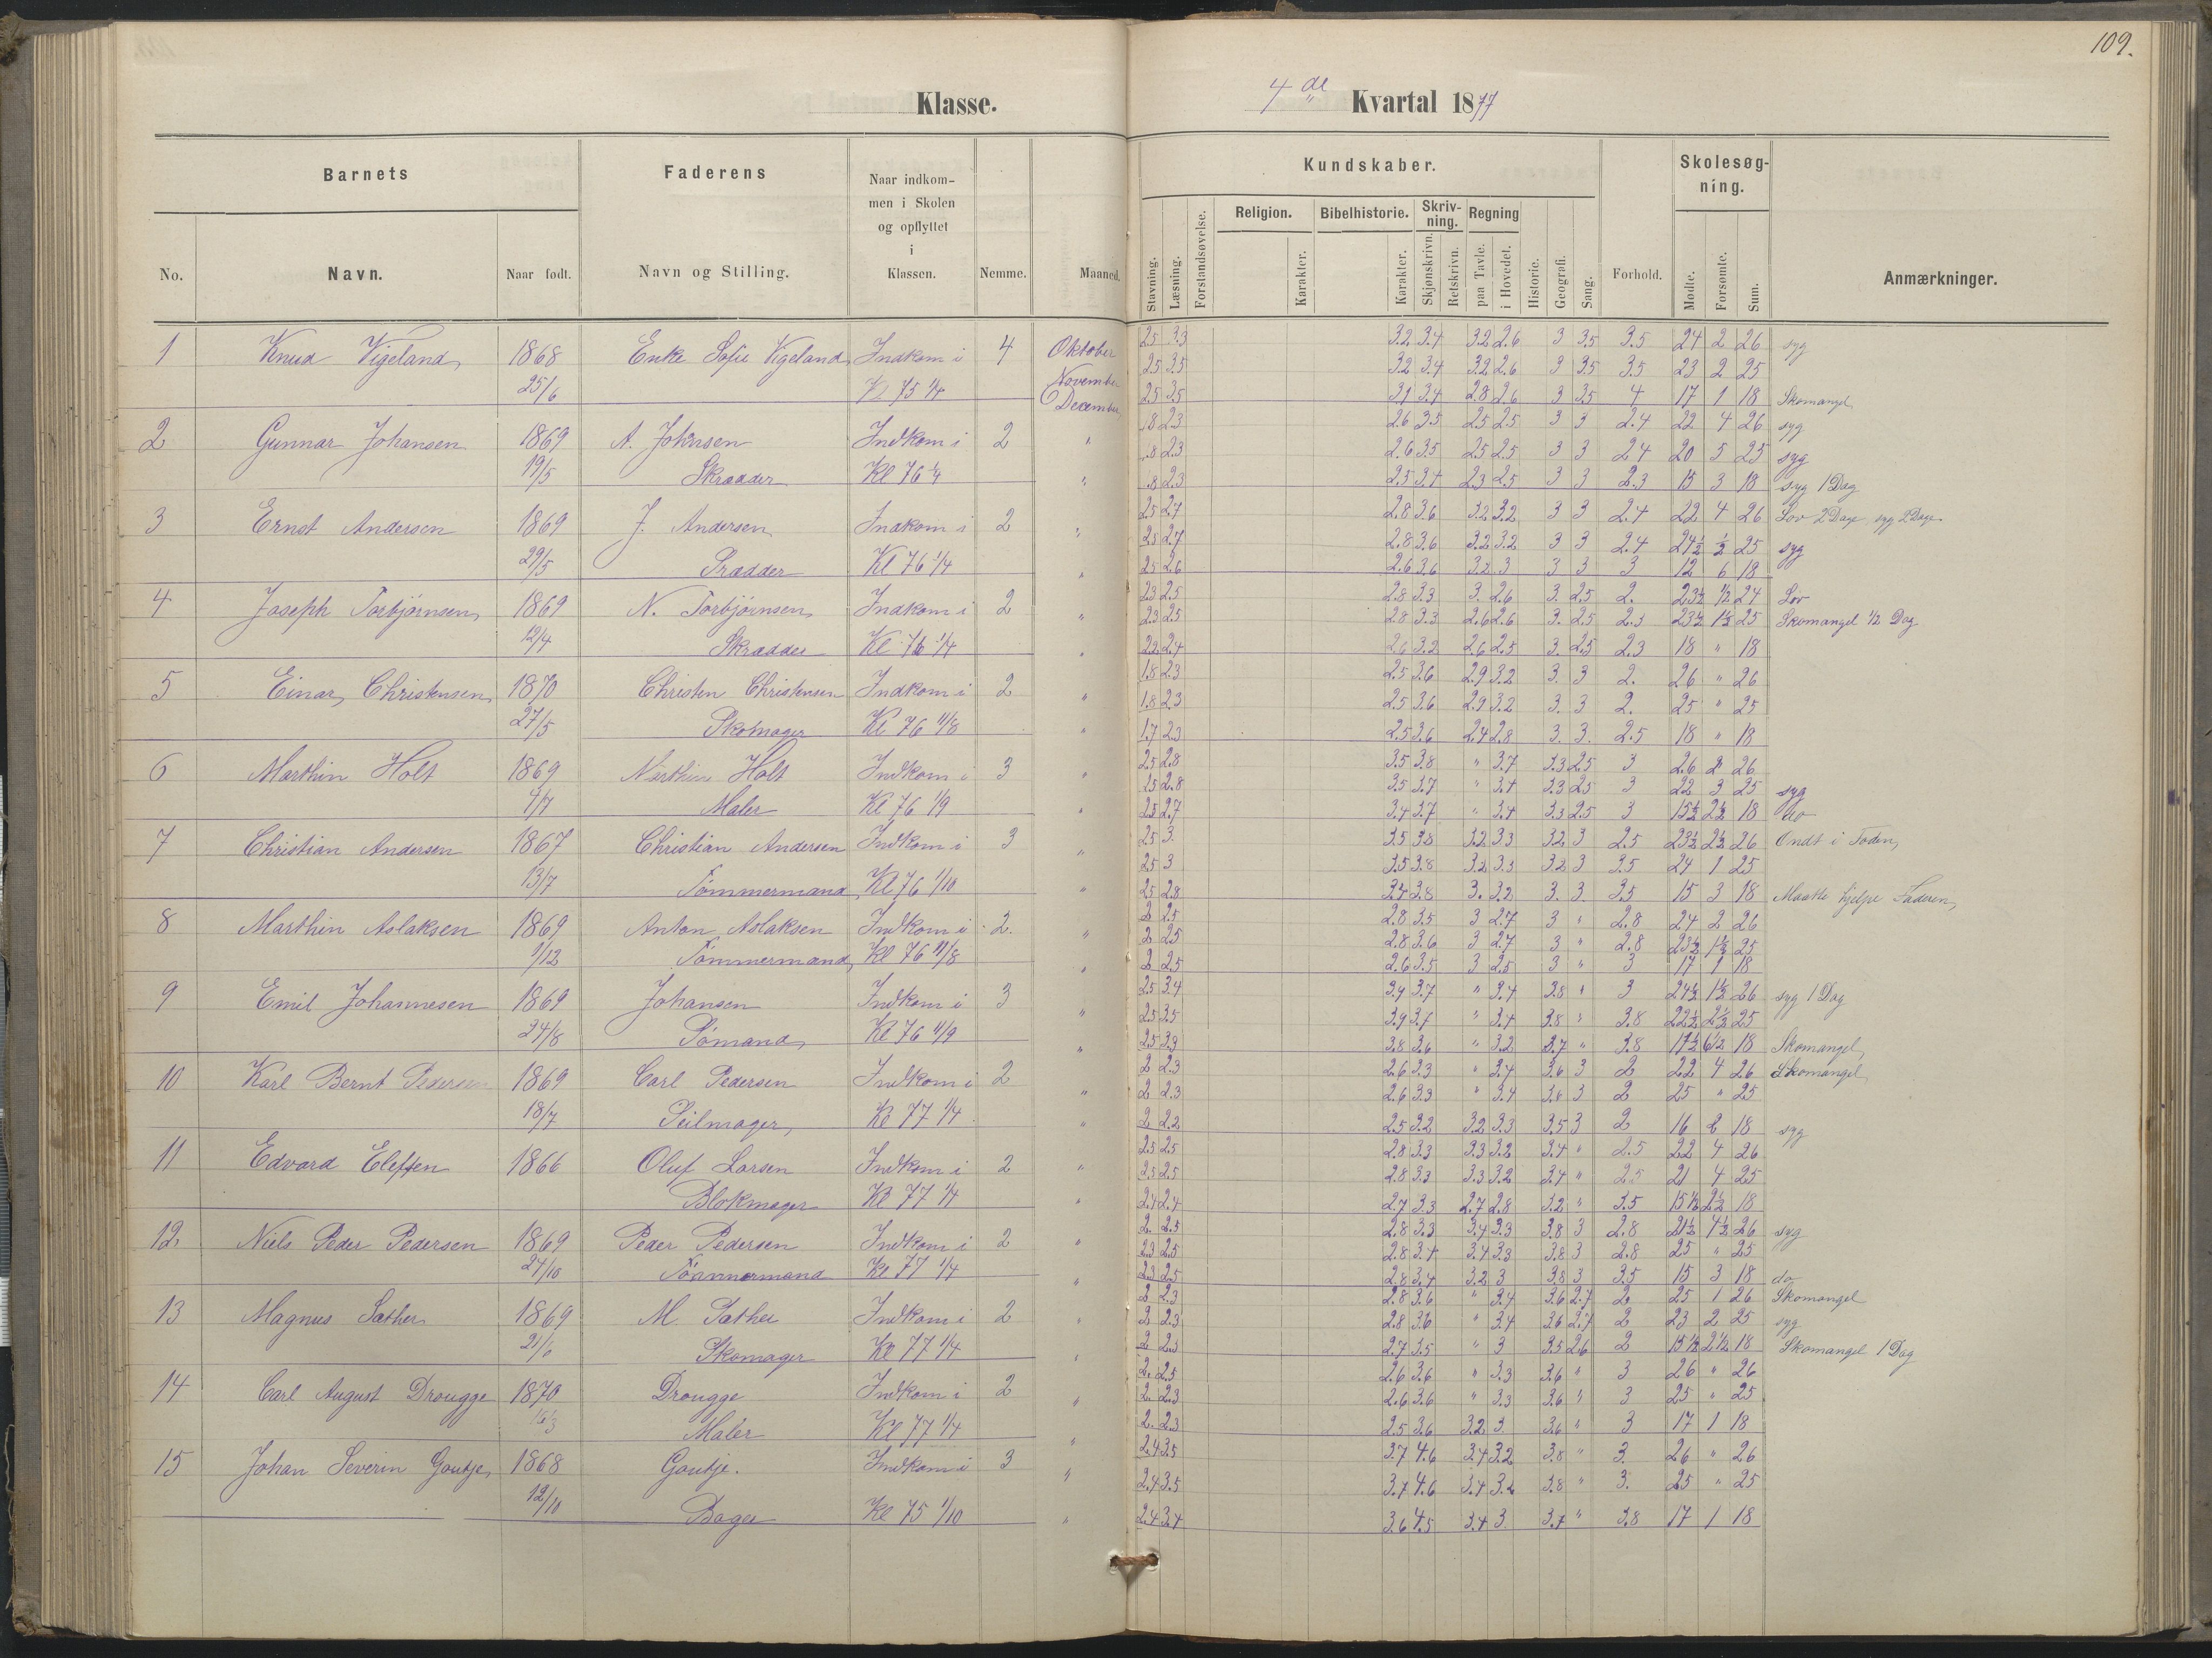 109.
Klasse.
4 de Kvartal 1877
Barnets
Faderens
Naar indkom-
men i Skolen
og opflyttet
i
Klassen.
No.
Navn.
Naar født.
Navn og Stilling.
Nemme.
Maaned.
Kundskaber.
Skolesøg-
ning.
Religion.
Bibelhistorie.
Skriv-
ning.
Regning
Stavning.
Læsning.
Forstandsøvelse.
Karakter.
Karakter.
Skjønskrivn.
Retskrivn.
paa Tavle.
i Hovedet.
Historie.
Geografi.
Sang.
Forhold.
Mødte.
Forsømte.
Sum.
Anmærkninger.
1 Knud Vigeland 1868 Enke Sofie Vigeland Indkom i 4 Oktober
25/6 Kl 75 1/4 November
December
2.5 3.3 3.2 3.4 3.2 2.6 3 3.5 3.5 24 2 26 syg
2.5 3.5 3.2 3.4 3.2 2.6 3 3.5 3.5 23 2 25
2.5 3.5 3.1 3.4 2.8 2.6 3 3.5 4 17 1 18 Skomangel
2 Gunnar Johansen 1869 A. Johnsen Indkom i 2 "
19/5 Skrædder Kl 76 1/4 "
1.8 2.3 2.6 3.5 2.5 2.5 3 3 2.4 22 4 26 syg
.8 2.3 2.6 3.5 2.5 2.5 3 3 2.4 20 5 25 syg
.8 2.3 2.5 3.4 2.3 2.5 3 3 2.3 15 3 18 syg 1 Dag
3 Ernst Andersen 1869 J. Andersen Indkom i 2 "
29/5 Srædder Kl 76 1/4 "
2.5 2.7 2.8 3.6 3.2 3.2 3 3 2.4 22 4 26 Lov 2 Dage syg 2 Dage
2.5 2.7 2.8 3.6 3.2 3.2 3 3 2.4 24½ ½ 25 syg
2.5 2.6 2.6 3.6 3.2 3 3 3 3 12 6 18
4 Joseph Torbjørnsen 1869 N. Torbjørnsen Indkom i 2 "
12/4 Skrædder Kl 76 1/4 "
2.3 2.5 2.8 3.3 3. 2.6 3. 2.5 2. 23½ ½ 24 Lov
2.3 2.5 2.8 3.3 2.6 2.6 3. 2.5 2.3 23½ 1½ 25 Skomangel 1/2 Dag
2.2 2.4 2.6 3.2 2.6 2.5 3. 2.5 2.3 18 " 18
5 Einar Christensen 1870 Christen Christensen Indkom i 2 "
27/5 Skomager Kl 76 11/8 "
1.8 2.3 2.5 3.6 2.9 3.2 3. 3 2. 26 " 26
1.8 2.3 2.5 3.6 2.9 3.2 3. 3 2. 25 " 25
1.7 2.3 2.5 3.6 2.4 2.8 3. 3. 2.5 18 " 18
6 Marthin Holt 1869 Marthin Holt Indkom i 3 "
4/7 Maler Kl 76 1/9 "
2.5 2.8 3.5 3.8 " 3.7 3.3 2.5 3 26 2 26
2.5 2.8 3.5 3.7 " 3.4 3.3 2.5 3 22 3 25 syg
2.5 2.7 3.4 3.7 " 3.4 3.3 2.5 3 15½ 2½ 18 do
7 Christian Andersen 1867 Christian Andersen Indkom i 3 "
13/7 Tømmermand Kl 76 1/10 "
2.5 3. 3.5 3.8 3.2 3.3 3.2 3 2.5 23½ 2½ 26 Ondt i Foden
2.5 3 3.5 3.8 3.2 3.3 3.2 3 3.5 24 1 25
2.5 2.8 3.4 3.8 3. 3.2 3. 3. 3.5 15 3 18 Maatte hjelpe Faderen
8 Marthin Aslaksen 1869 Anton Aslaksen Indkom i 2. "
1/12 Tømmermand Kl 76 11/8 "
2 2.5 2.8 3.5 3 2.7 3 " 2.8 24 2 26
2 2.5 2.8 3.6 3 2.7 3 " 2.8 23½ 1½ 25
2 2.5 2.6 3.5 3 2.5 3 " 3 17 1 18
9 Emil Johannesen 1869 Johansen Indkom i 3 "
24/8 Sømand Kl 76 11/9 "
2.5 3.4 3.9 3.7 " 3.4 3.8 " 3 24½ 1½ 26 syg 1 Dag
2.5 3.5 3.9 3.7 " 3.4 3.8 " 3.8 22½ 2½ 25
2.5 3.3 3.8 3.6 " 3.2 3.7 " 3.8 17½ 6½ 18 Skomangel
10 Karl Bernt Pedersen 1869 Carl Pedersen Indkom i 2 "
18/7 Seilmager Kl 77 1/4 "
2 2.3 2.6 2.3 " 3.4 3.6 3 2 22 4 26 Skomangel
2 2.3 2.6 3.3 " 3.4 3.8 3 2 25 " 25
2 2.2 2.5 3.2 3.2 3.3 3.5 3 2 16 2 18 syg
11 Edvard Eleffen 1866 Oluf Larsen Indkom i 2 "
Blokmager Kl 77 1/4 "
2.5 2.5 2.8 3.3 3.3 3.2 3.4 " 2.5 22 4 26
2.5 2.5 2.8 3.3 3.3 3.2 3.4 " 2.5 21 4 25
2.4 2.4 2.7 3.3 2.7 2.8 3.2 " 3.5 15½ 2½ 18
12 Niels Peder Pedersen 1869 Peder Pedersen Indkom i 2 "
24/10 Tømmermand Kl 77 1/4 "
2. 2.5 2.8 3.3 3.4 3.3 3.8 3 2.8 21½ 4½ 26 syg
2.3 2.5 2.8 3.4 3.4 3.3 3.8 3 2.8 25 " 25
2.3 2.5 2.8 3.4 3.2 3 3.8 3 3.5 15 3 18 do
13 Magnus Sæther 1869 M. Sæther Indkom i 2 "
21/6 Skomager Kl 77 1/4 "
2 2.3 2.8 3.6 " 3.4 3.6 2.7 2 25 1 26 Skomangel
2 2.3 2.8 3.6 " 3.4 3.6 2.7 2 23 2 25 syg
2 2.3 2.7 3.5 " 3 3.5 2.6 2 15½ 2½ 18 Skomangel 1 Dag
14 Carl August Drougge 1870 Drougge Indkom i 2 "
16/3 Maler Kl 77 1/4 "
2. 2.5 2.6 3.6 " 3.3 3.6 " 3 26 " 26
2. 2.3 2.6 3.6 " 3.3 3.6 " 3 25 " 25
2. 2.3 2.5 3.6 3.2 3 3.6 " 3 17 1 18
15 Johan Severin Goutje 1868 Goutje. Indkom i 3 "
12/10 Bager Kl 75 1/10 "
2.4 3.5 3.7 4.6 3.4 3.2 3.8 " 3. 26 " 26
2.4 3.5 3.7 4.6 3.4 3.2 3.8 " 3. 25 " 25
2.4 3.4 3.6 4.5 3.4 3 3.7 " 3.8 17 1 18